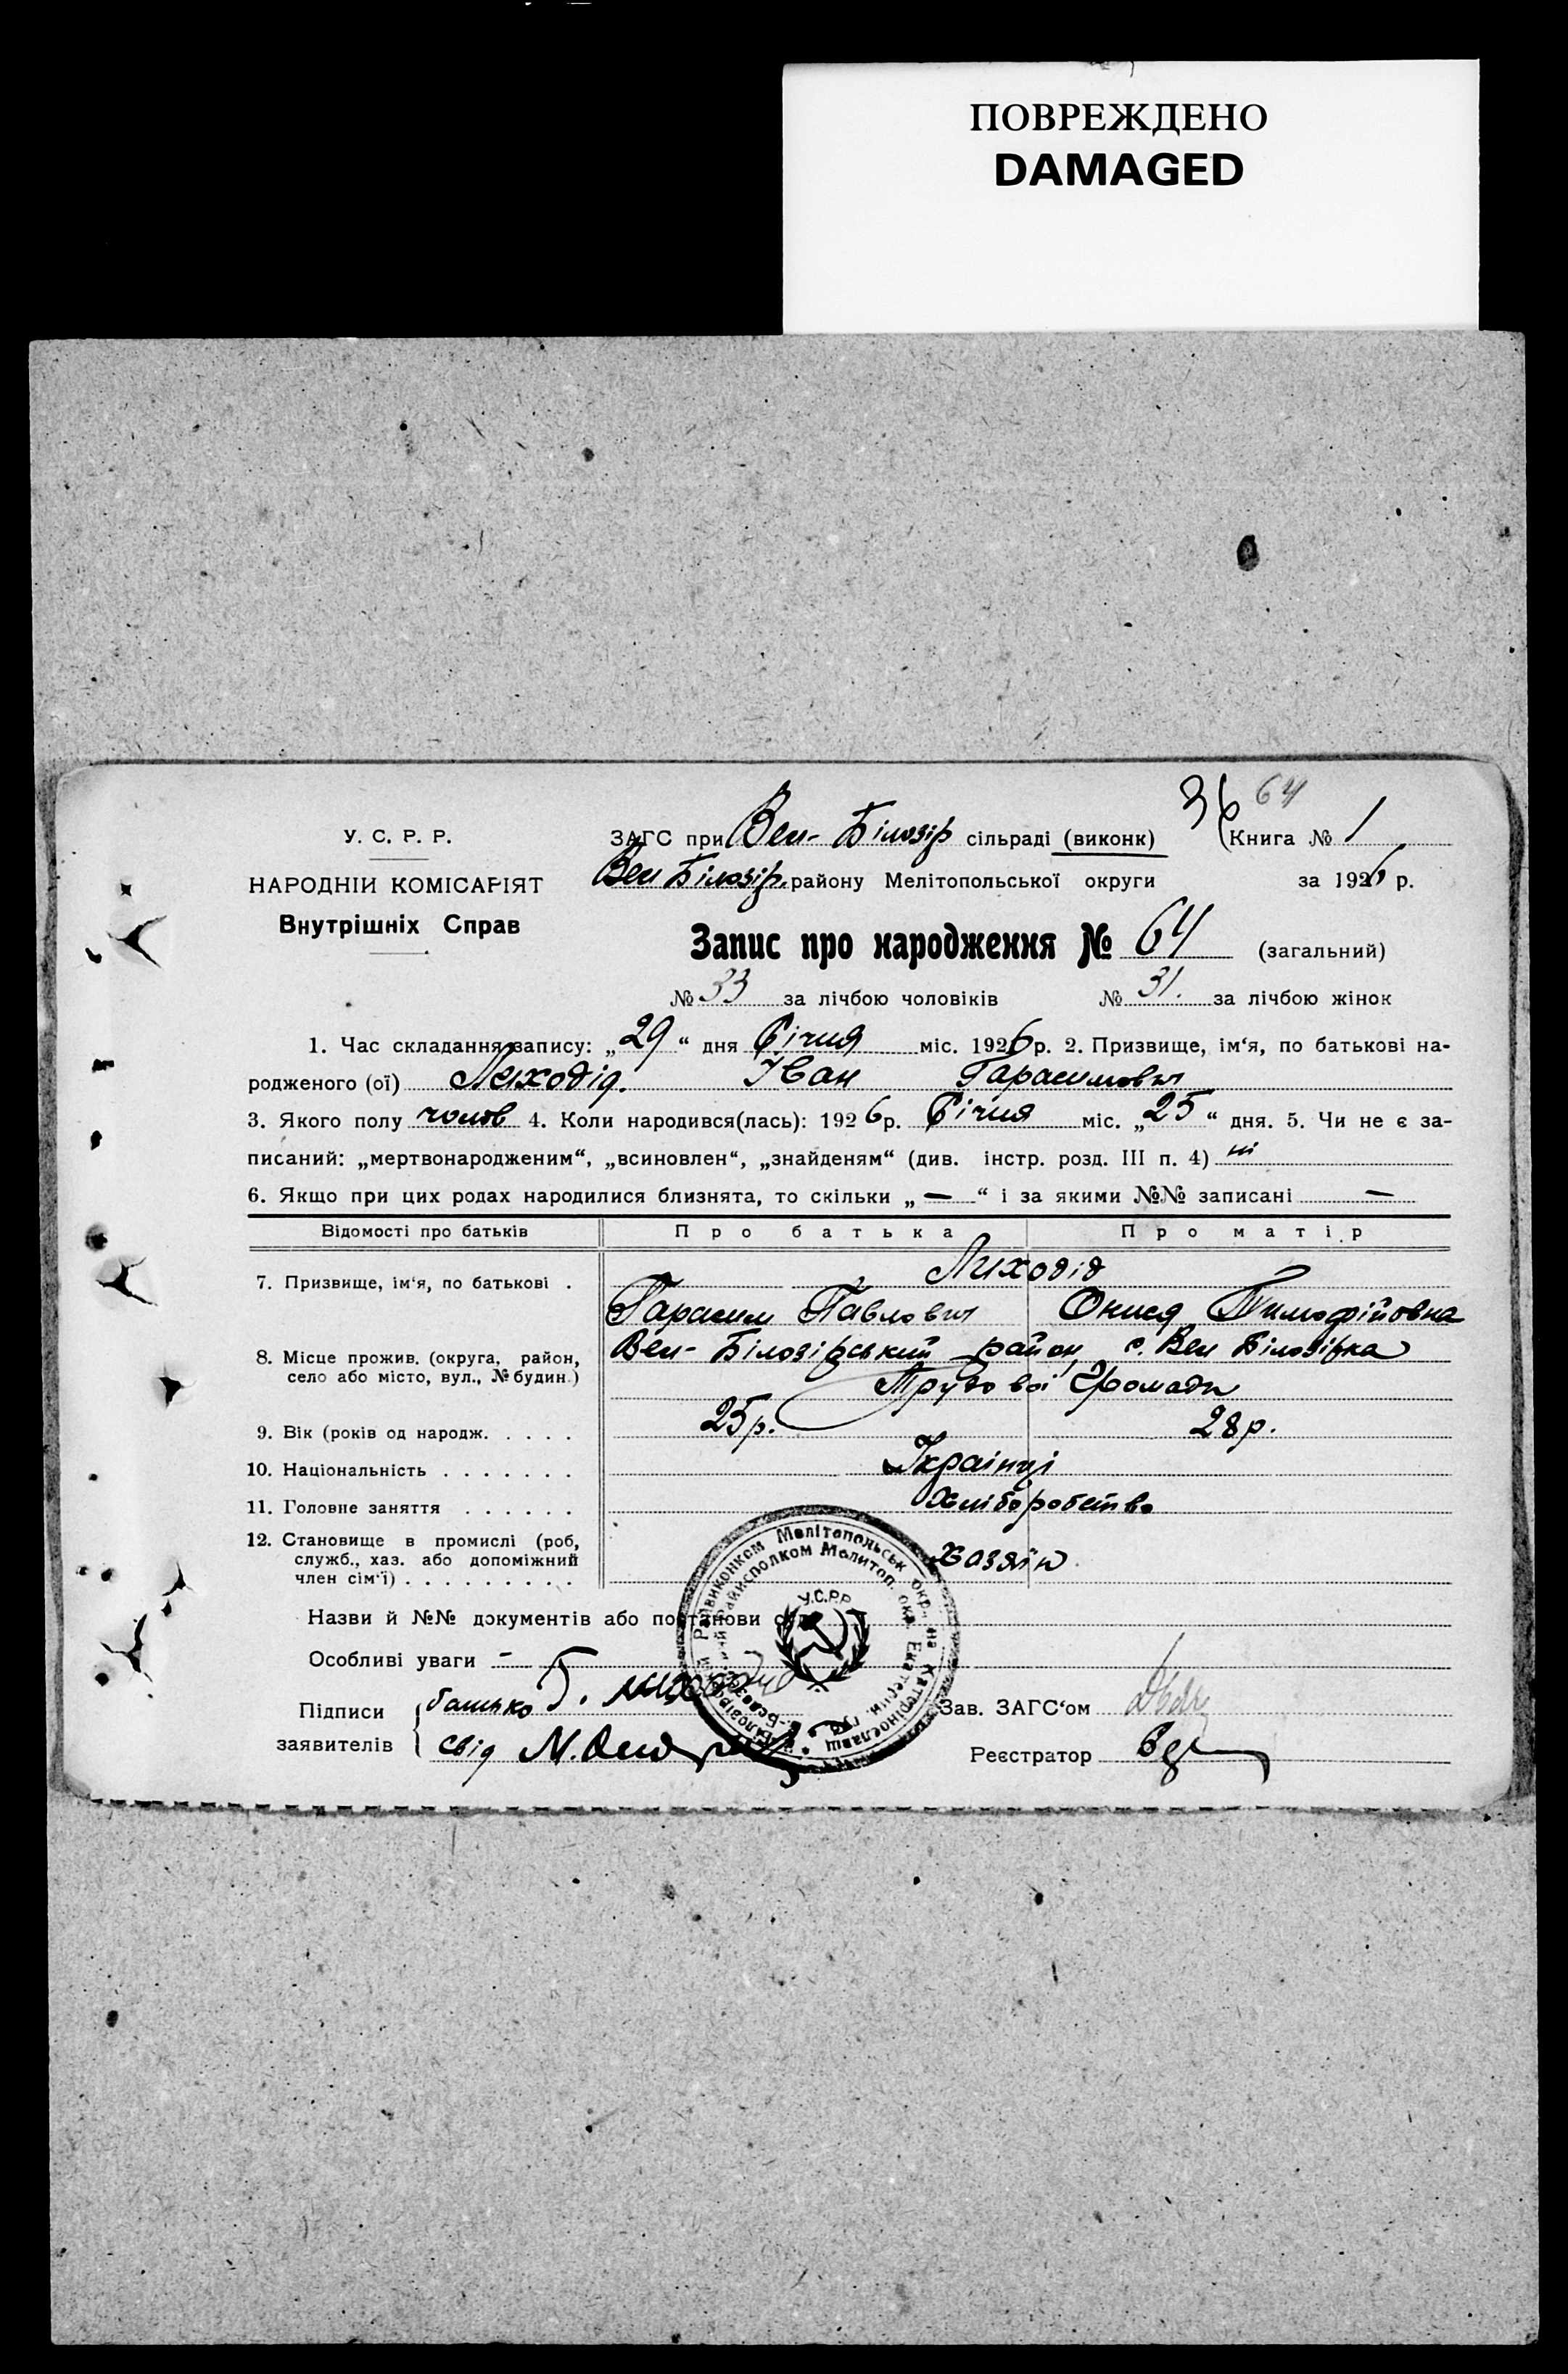 ПОВРЕЖДЕНО
DAMAGED
36 64
У. С. Р. Р.
НАРОДНІЙ КОМІСАРІЯТ
Внутрішніх Справ
ЗАГС при Вел- Білозір сільраді (виконк) Книга № 1
Вел Білозір. району Мелітопольської округи за 1926 р.
Запис про народження № 64 (загальний)
№ 33 за лічбою чоловіків № 31. за лічбою жінок
1. Час складання запису: „29“ дня Січня міс. 1926 р. 2. Призвище, ім‘я, по батькові на-
родженого (ої) Лиходід. Іван Гарасимович
3. Якого полу чолов 4. Коли народився(лась): 1926 р. Січня міс. „25“ дня. 5. Чи не є за-
писаний: „мертвонародженим“, „всиновлен“, „знайденям“ (див. інстр. розд. III п. 4) ні
6. Якщо при цих родах народилися близнята, то скільки „—“ і за якими №№ записані —
Відомості про батьків Про батька Про матір
7. Призвище, ім‘я, по батькові . Лиходід
Гарасим Павлович Онися Тимофійовна
8. Місце прожив. (округа, район, село або місто, вул., № будин.) Вел- Білозірський район, с. Вел Білозірка
Трудової Громади
9. Вік (років од народж. . . . . 25 р. 28 р.
10. Національність . . . . . . . Українці
11. Головне заняття . . . . . . Хліборобство
12. Становище в промислі (роб, служб., хаз. або допоміжний член сім‘ї) . . . . . . . . . Хазяїн
Назви й №№ документів або постанови суду
Особливі уваги —
Підписи заявителів
батько Г. Лиходід
свід
Зав. ЗАГС‘ом
Реєстратор
У.С.Р.Р
Райвиконком Мелітопольськ окр. на Катеринославщ
Райисполком Мелитоп. окр. Екатерин. губ.